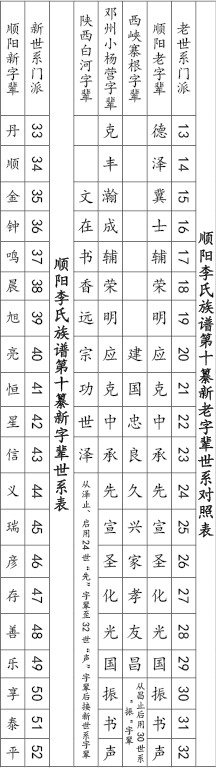 顺阳李氏族谱第十纂新老字辈世系对照表
老世系门派 13 14 15 16 17 18 19 20 21 22 23 24 25 26 27 28 29 30 31 32
顺阳老字辈 德 泽 冀 士 辅 荣 明 应 克 中 承 先 宣 圣 化 光 国 振 书 声
西峡寨根字辈 建 国 忠 良 久 兴 家 孝 友 昌 从昌止后用30世系
"振"字辈
邓州小杨营字辈 克 丰 瀚 成 辅 荣 明 应 克 中 承 先 宣 圣 化 光 国 振 书 声
陕西白河字辈 文 在 书 香 远 宗 功 世 泽 从泽止、启用24世"先"字辈至32世"声"字辈后接新世系字辈
顺阳李氏族谱第十纂新字辈世系表
新世系门派 33 34 35 36 37 38 39 40 41 42 43 44 45 46 47 48 49 50 51 52
顺阳新字辈 丹 顺 金 钟 鸣 晨 旭 亮 恒 星 信 义 瑞 彦 存 善 乐 享 泰 平